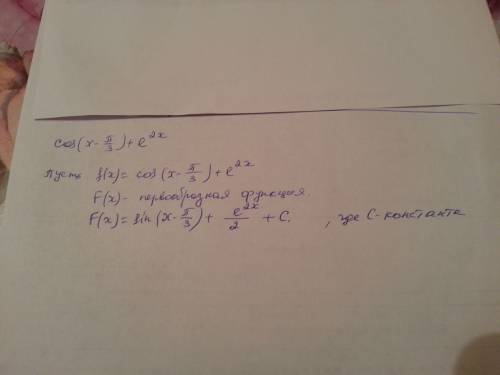 cos(x-π/3)+e^2x
Пусть f(x)= cos(x-π/3)+e^2x
F(x)- первообразная функция.
F(x)= sin(x-π/3)+ e^2x/2 +C. , где C-константа